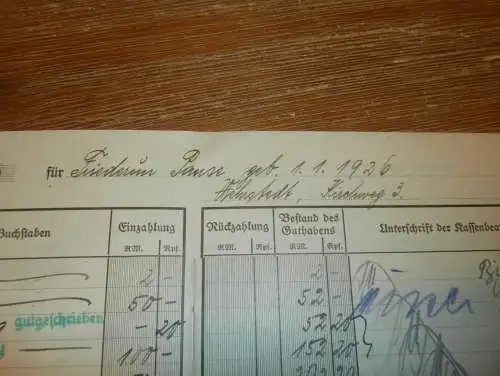 für Friederun Pause geb. 1. 1. 1926
Wehrstedt, Kirchweg 3.
Buchstaben Einzahlung Rückzahlung Bestand des Guthabens Unterschrift der Kassenbea
RM. Rpf. RM. Rpf. RM. Rpf.
2 - 2 -
50 - 52 -
gutgeschrieben - 20 52 20
100 - 152 20
50 202 20